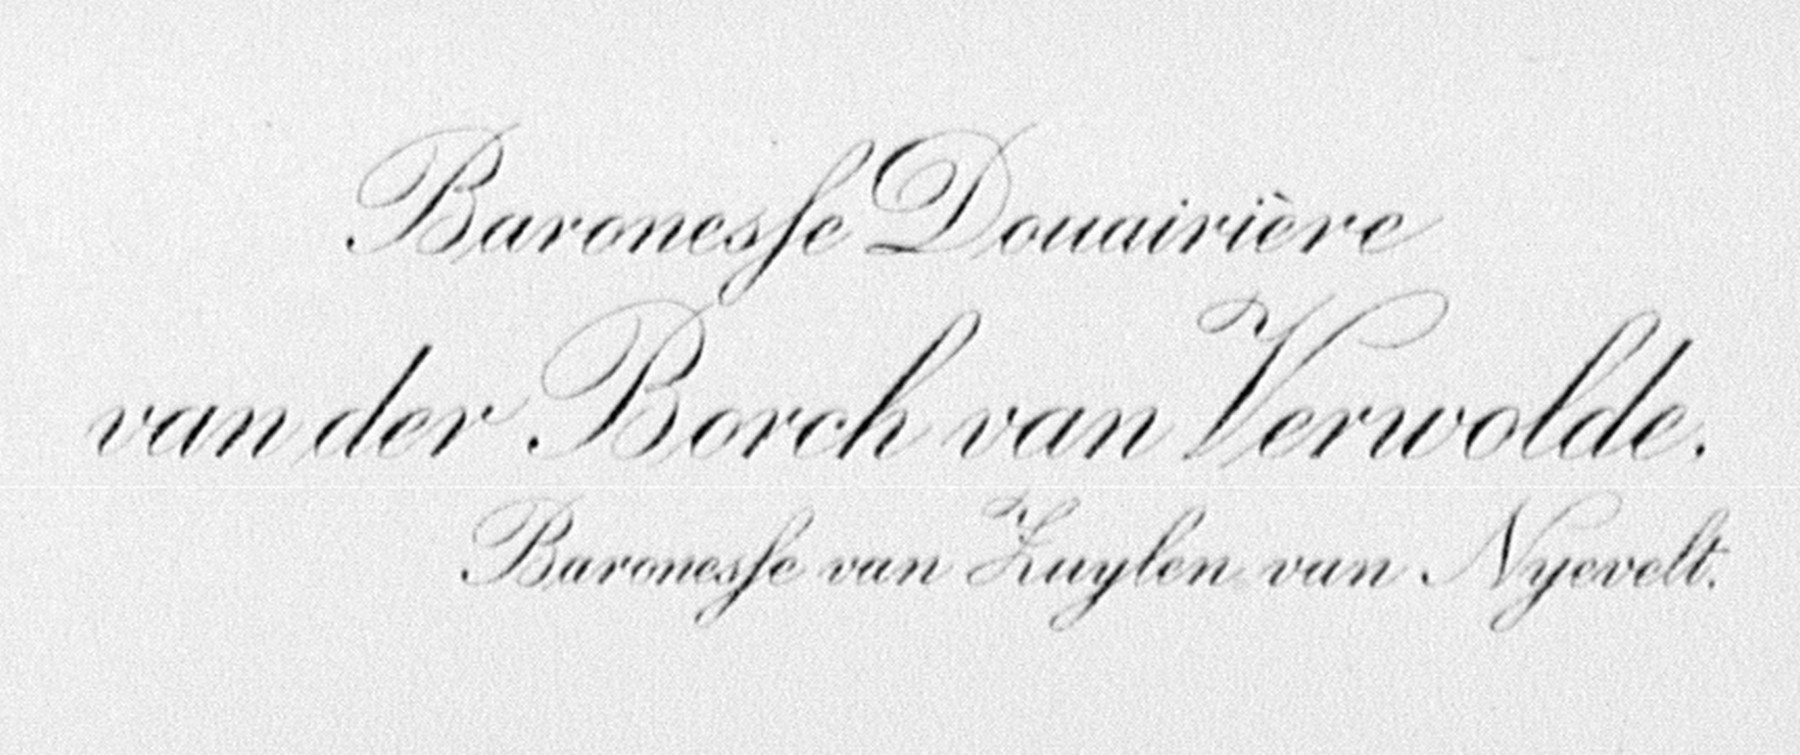 Baronesse Douairière
van der Borch van Verwolde.
Baronesse van Zuylen van Nyevelt.